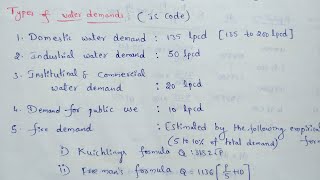 Types of water demands: (IS code)
1. Domestic water demand : 135 lpcd [135 to 200 lpcd]
2. Industrial water demand : 50 lpcd
3. Institutional & commercial
water demand : 20 lpcd
4. Demand for public use : 10 lpcd
5. fire demand : Estimated by the following empirical
(5 to 10% of total demand)
i) Kuichling's formula Q = 3182 √P
ii) Freeman's formula : Q = 1136 [P/5 + 10]